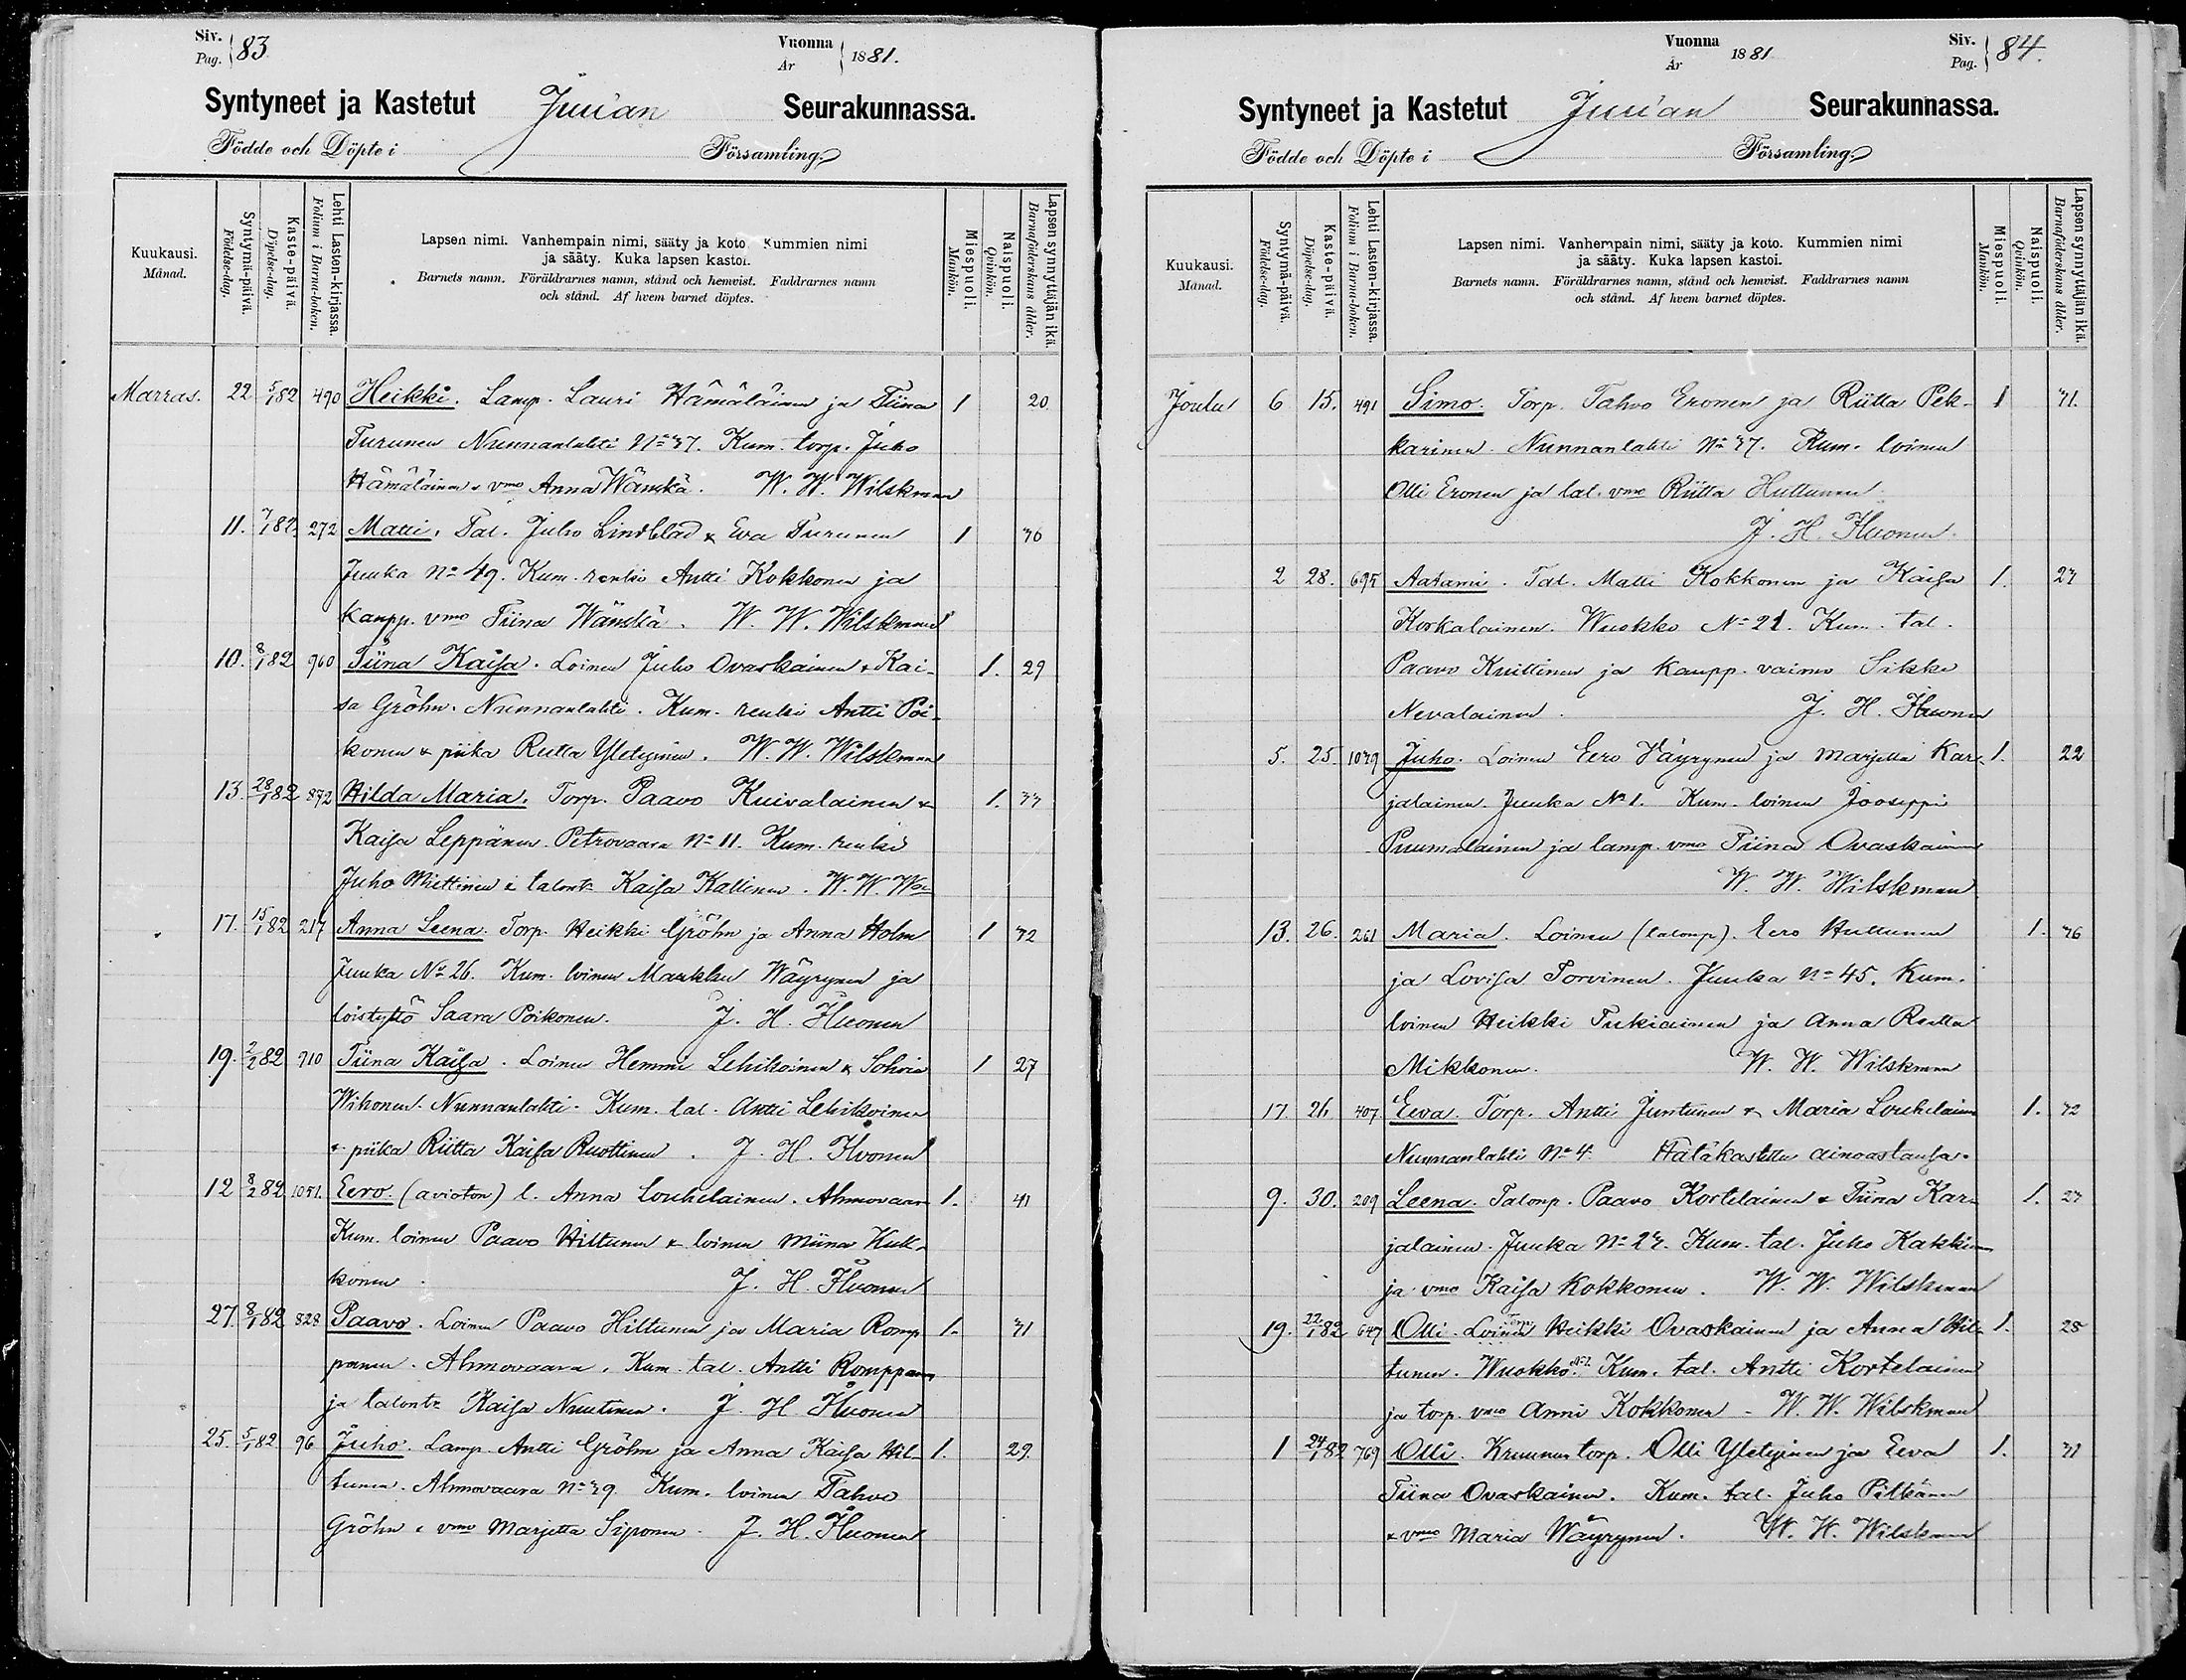 Siv. Pag. 83.
Vuonna År 1881.
Syntyneet ja Kastetut Juuan Seurakunnassa.
Födde och Döpte i Församling.
Kuukausi. Månad.
Syntymä-päivä. Födelse-dag.
Kaste-päivä. Döpelse-dag.
Lehti Lasten-kirjassa. Folium i Barna-boken.
Lapsen nimi. Vanhempain nimi, sääty ja koto. Kummien nimi
ja sääty. Kuka lapsen kastoi.
Barnets namn. Föräldrarnes namn, stånd och hemvist. Faddrarnes namn
och stånd. Af hvem barnet döptes.
Miespuoli. Mankön.
Naispuoli. Qvinkön.
Lapsen synnyttäjän ikä. Barnaföderskans ålder.
Marras. 22 5/1 82 490 Heikki. Lamp. Lauri Hämäläinen ja Tiina 1 20
Turunen Nunnanlahti No 37. Kum. torp. Juho
Hämäläinen & vmo Anna Wänskä. W. W. Wilskman
11. 7/1 82. 272 Matti. Tal. Juho Lindblad & Eva Turunen 1 36
Juuka No 49. Kum. renki Antti Kokkonen ja
Kaupp. vmo Tiina Wänskä. W. W. Wilskman
10. 8/1 82 960 Tiina Kaisa. Loinen Juho Ovaskainen & Kai- 1. 29
sa Gröhn. Nunnanlahti. Kum. renki Antti Poi-
konen & piika Reetta Yletyinen. W. W. Wilskman
13. 28/1 82 872 Hilda Maria. Torp. Paavo Kuivalainen & 1. 33
Kaisa Leppänen. Petrovaara No 11. Kum. renki
Juho Miettinen & talont. Kaisa Kallinen. W. W. Wn
17. 15/1 82 217 Anna Leena. Torp. Heikki Gröhn ja Anna Holm 1 32
Juuka No 26. Kum. loinen Markku Wäyrynen ja
loistyttö Saara Poikonen. J. H. Huonen
19. 2/2 82 910 Tiina Kaisa. Loinen Hemmi Lehikoinen & Sohvia 1 27
Wihonen. Nunnanlahti. Kum. tal. Antti Lehikoinen
& piika Riitta Kaisa Ruottinen. J. H. Huonen
12 8/2 82 1051. Eero. (avioton) l. Anna Louhelainen. Ahmovaara 1. 41
Kum. loinen Paavo Hiltunen & loinen Miina Kuk-
konen. J. H. Huonen
27. 8/1 82 828 Paavo. Loinen Paavo Hiltunen ja Maria Romp- 1. 31
panen. Ahmovaara. Kum. tal. Antti Romppanen
ja talont. Kaisa Nuutinen. J. H. Huonen
25. 5/1 82 96 Juho. Lamp. Antti Gröhn ja Anna Kaisa Hil- 1. 29.
tunen. Ahmovaara No 39. Kum. loinen Tahvo
Gröhn & vmo Marjetta Siponen. J. H. Huonen
Vuonna År 1881
Siv. Pag. 84.
Syntyneet ja Kastetut Juuan Seurakunnassa.
Födde och Döpte i Församling.
Kuukausi. Månad.
Syntymä-päivä. Födelse-dag.
Kaste-päivä. Döpelse-dag.
Lehti Lasten-kirjassa. Folium i Barna-boken.
Lapsen nimi. Vanhempain nimi, sääty ja koto. Kummien nimi
ja sääty. Kuka lapsen kastoi.
Barnets namn. Föräldrarnes namn, stånd och hemvist. Faddrarnes namn
och stånd. Af hvem barnet döptes.
Miespuoli. Mankön.
Naispuoli. Qvinkön.
Lapsen synnyttäjän ikä. Barnaföderskans ålder.
Joulu 6 15. 491 Simo. Torp. Tahvo Eronen ja Riitta Pek- 1 31.
karinen. Nunnanlahti No 37. Kum. loinen
Olli Eronen ja tal. vmo Riitta Huttunen.
J. H. Huonen.
2 28. 695 Aatami. Tal. Matti Kokkonen ja Kaisa 1. 23
Korkalainen. Wuokko No 21. Kum. tal.
Paavo Knuttinen ja kaupp. vaimo Sikke
Nevalainen. J. H. Huonen
5. 25. 1039 Juho. Loinen Eero Väyrynen ja Marjetta Kar- 1. 22
jalainen. Juuka No 1. Kum. loinen Jooseppi
Puumalainen ja lamp. vmo Tiina Ovaskainen
W. W. Wilskman
13. 26. 261 Maria. Loinen (talonp). Eero Huttunen 1. 36
ja Lovisa Torvinen. Juuka No 45. Kum.
loinen Heikki Tukiainen ja Anna Reetta
Mikkonen. W. W. Wilskman
17. 26 407 Eeva. Torp. Antti Juntunen & Maria Louhelainen 1. 32
Nunnanlahti No 4. Hätäkastettu ainoastansa.
9. 30. 209 Leena. Talonp. Paavo Kortelainen & Tiina Kar- 1. 23
jalainen. Juuka No 23. Kum. tal. Juho Kakkinen
ja vmo Kaisa Kokkonen. W. W. Wilskman
19. 22/1 82 647 Olli. Loinen Torp. Heikki Ovaskainen ja Anna Hil- 1. 25
tunen. Wuokko No 2. Kum. tal. Antti Kortelainen
ja torp. vmo Anni Kokkonen. W. W. Wilskman
1 24/1 82 769 Olli. Kruunun torp. Olli Yletyinen ja Eeva 1. 31
Tiina Ovaskainen. Kum. tal. Juho Pitkänen
& vmo Maria Wäyrynen. W. W. Wilskman